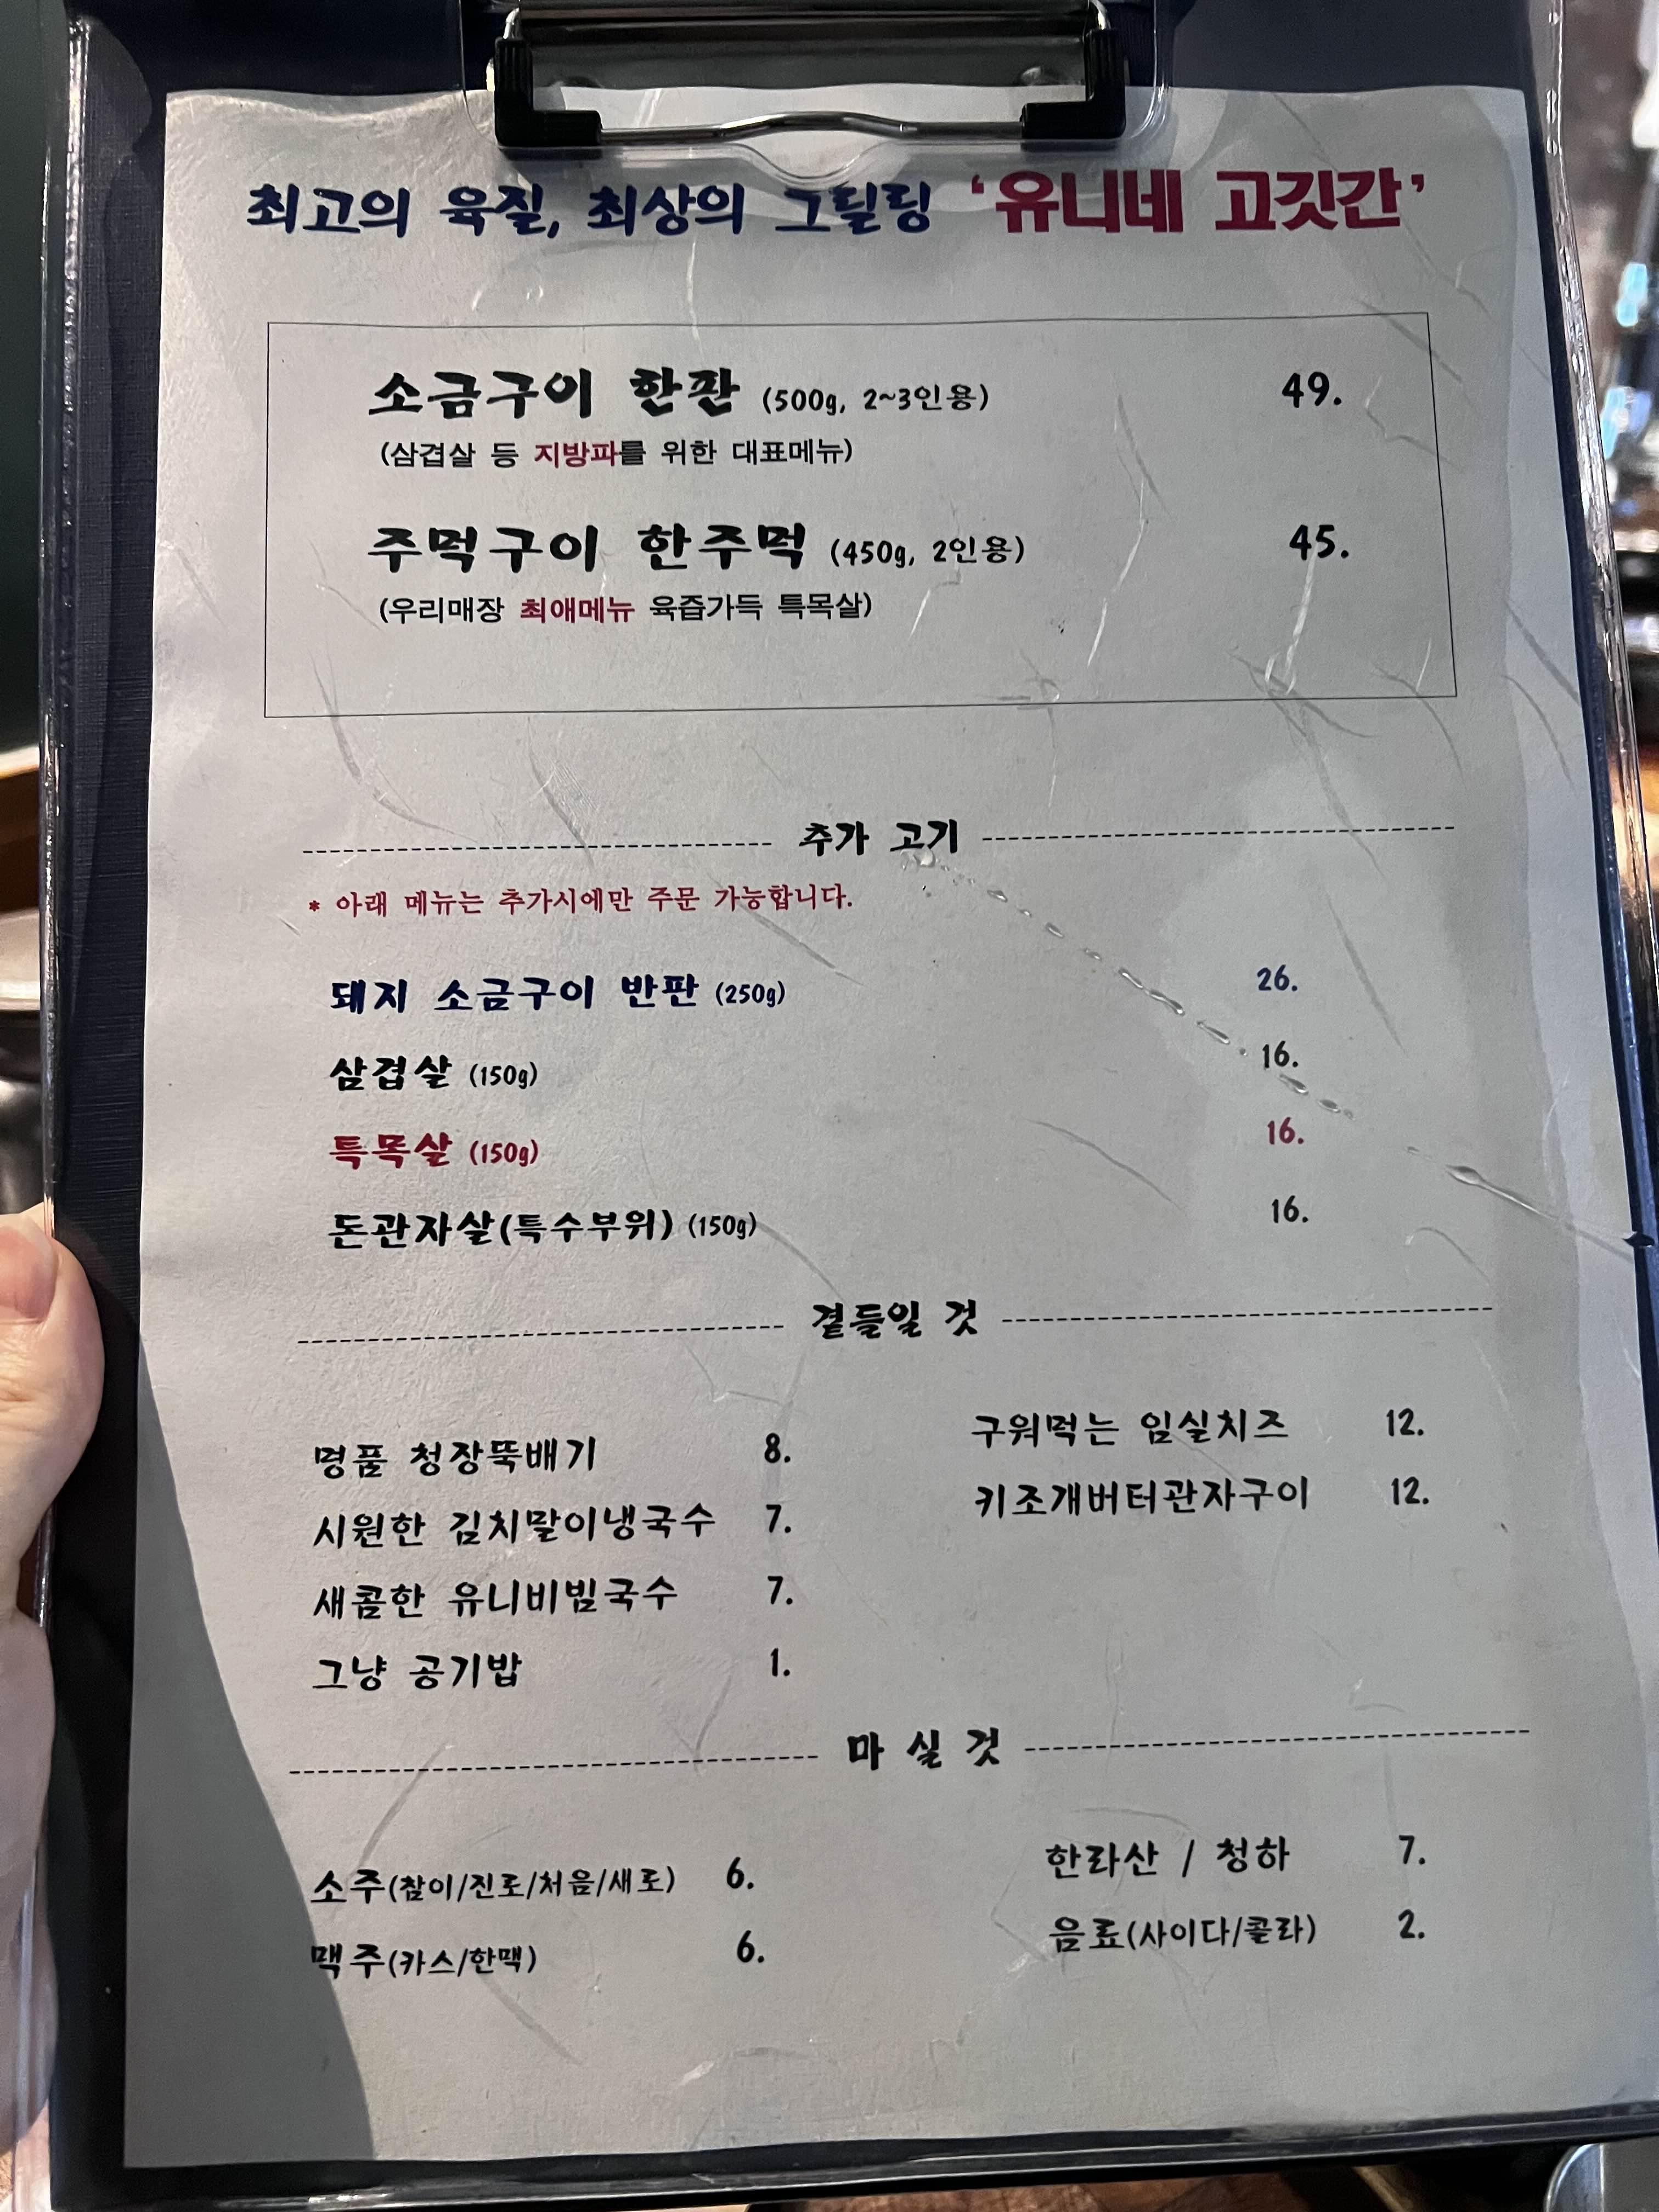 최고의 육질, 최상의 그릴링 '유니네 고깃간'
소금구이 한판 (500g, 2~3인용) 49.
(삼겹살 등 지방파를 위한 대표메뉴)
주먹구이 한주먹 (450g, 2인용) 45.
(우리매장 최애메뉴 육즙가득 특목살)
추가 고기
* 아래 메뉴는 추가시에만 주문 가능합니다.
돼지 소금구이 반판 (250g) 26.
삼겹살 (150g) 16.
특목살 (150g) 16.
돈관자살(특수부위) (150g) 16.
곁들일 것
명품 청장뚝배기 8.
시원한 김치말이냉국수 7.
새콤한 유니비빔국수 7.
그냥 공기밥 1.
구워먹는 임실치즈 12.
키조개버터관자구이 12.
마실 것
소주(참이/진로/처음/새로) 6.
맥주(카스/한맥) 6.
한라산 / 청하 7.
음료(사이다/콜라) 2.